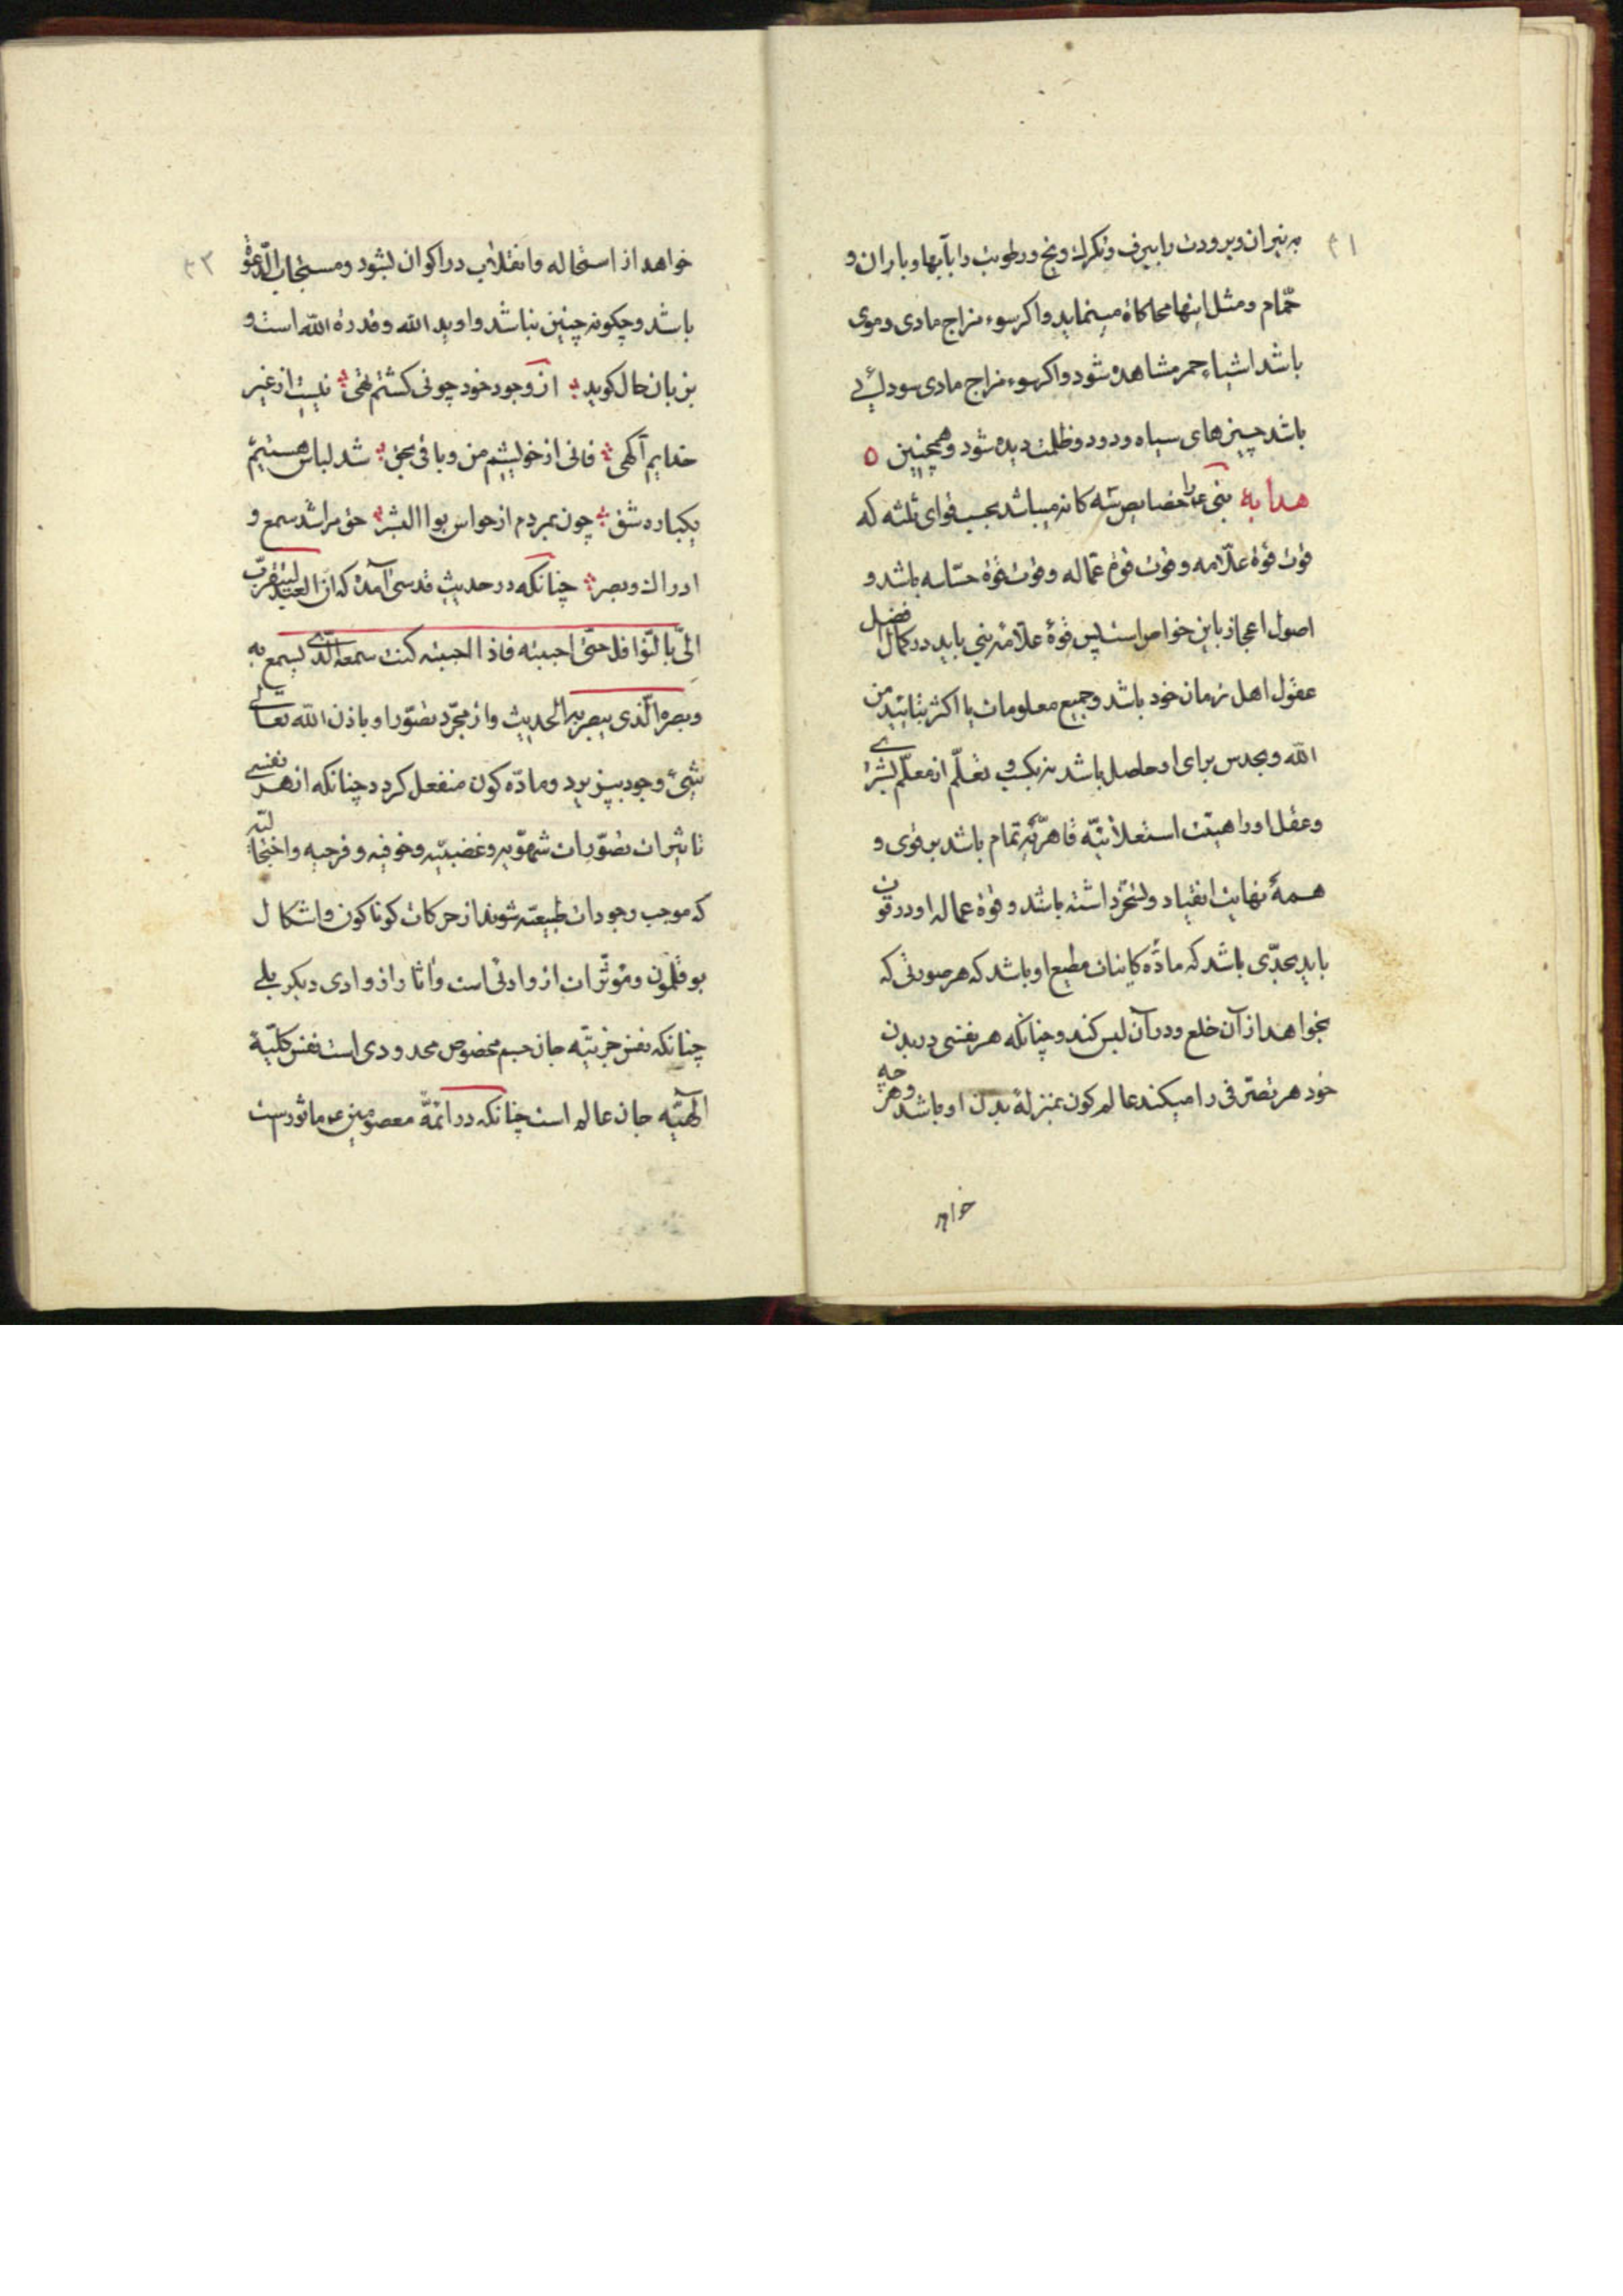 ۳۱
به نیران و برودت را ببرف و تگرگ و یخ و رطوبت را بآبها و باران و
حمّام و مثل اینها محاکاة مینماید و اکر سوء مزاج مادی دموی
باشد اشیاء حمر مشاهده شود و اکر سوء مزاج مادی سودائی
باشد چیزهای سیاه و دود و ظلمت دیده شود و همچنین ه
هدایة نبی ع را خصایص ثلثه کانه میباشد بحسب قوای ثلثه که
قوت قوة علّامه و قوت قوة عمّاله و قوت قوة حسّاسه باشد و
اصول اعجاز باین خواص است پس قوة علّامه نبی باید در کمال فضل
عقول اهل زمان خود باشد و جمیع معلومات یا اکثر بتائید من
الله و بحدس برای او حاصل باشد نه بکسب و تعلّم از معلّم بشری
و عقل او را هیئت استعلائیّه قاهریّه تمام باشد بر قوی و
همه نهایت انقیاد و تسخّر داشته باشد و قوة عماله او در قوت
باید بحدّی باشد که مادّه کاینات مطیع او باشد که هر صورتی که
بخواهد از آن خلع و در آن لبس کند و چنانکه هر نفسی در بدن
خود هر تصرّفی را میکند عالم کون بمنزلة بدن او باشد و هر چه
خواهد
۳۲
خواهد از استحاله و انقلاب در اکوان بشود و مستجاب الدّعوة
باشد و چکونه چنین نباشد و او ید الله و قدرة الله است و
بزبان حال کوید از وجود خود چونی کشتم تهی نیست از غیر
خدایم آکهی فانی از خویشم من و باقی بحق شد لباس هستیم
یکباره شق چون بمردم از حواس بوالبشر حق مرا شد سمع و
ادراک و بصر چنانکه در حدیث قدسی آمده که انّ العبد لیتقرّب
الیّ بالنّوافل حتّی احببته فاذا احببته کنت سمعه الّذی یسمع به
و بصره الّذی یبصر به الحدیث و از مجرّد تصوّر او باذن الله تعالی
شیئ وجود بپذیرد و مادّه کون منفعل کردد چنانکه از هر نفسی
تاثیرات تصوّرات شهویّه و غضبیّه و خوفیه و فرحیه و اخجالیّه
که موجب وجودات طبیعیّه شوند از حرکات کوناکون و اشکال
بوقلمون و مؤثّرات از وادئی است و آثار از وادی دیکر بلی
چنانکه نفس جزئیّه جان جسم مخصوص محدودی است نفس کلّیّة
الهیّه جان عالم است چنانکه در ائمّة معصومین ع ماثورست